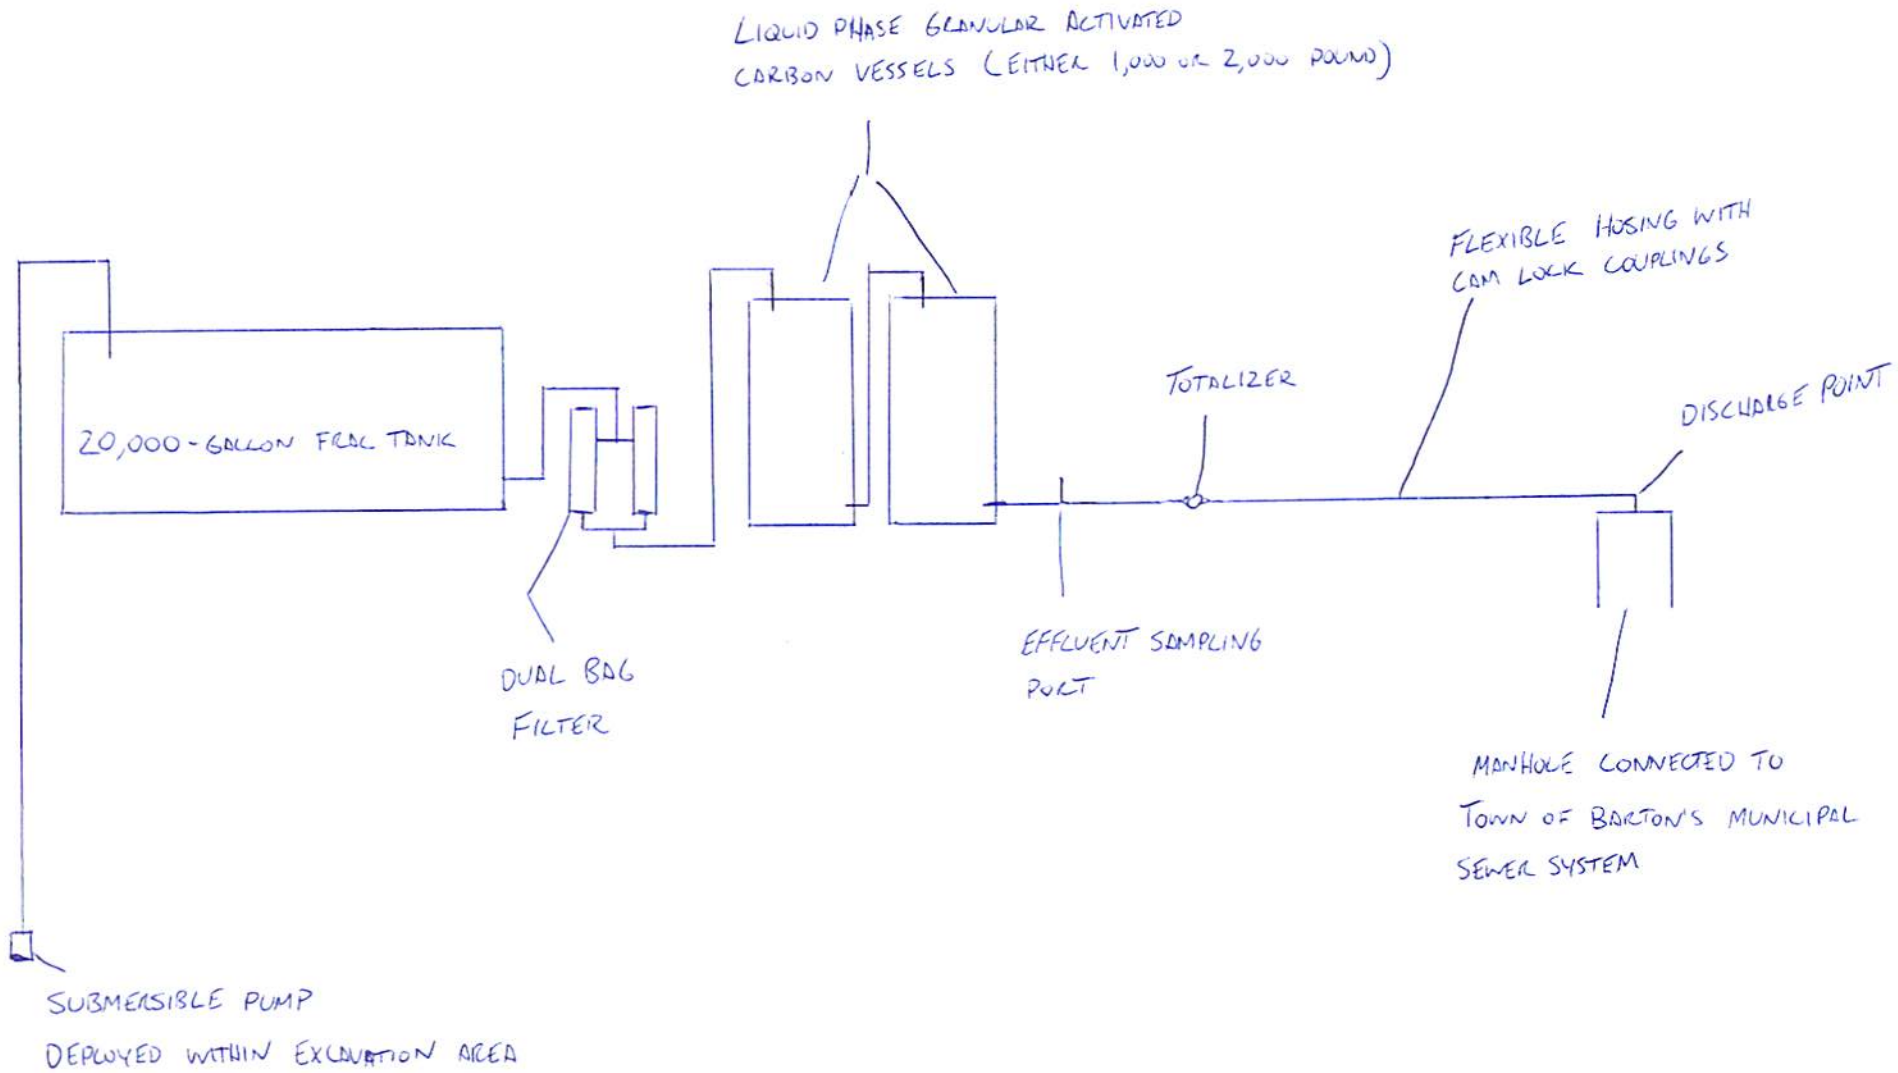 LIQUID PHASE GRANULAR ACTIVATED
CARBON VESSELS (EITHER 1,000 OR 2,000 POUND)
FLEXIBLE HOSING WITH
CAM LOCK COUPLINGS
TOTALIZER
DISCHARGE POINT
20,000-GALLON FRAC TANK
EFFLUENT SAMPLING
PORT
DUAL BAG
FILTER
MANHOLE CONNECTED TO
TOWN OF BARTON'S MUNICIPAL
SEWER SYSTEM
SUBMERSIBLE PUMP
DEPLOYED WITHIN EXCAVATION AREA